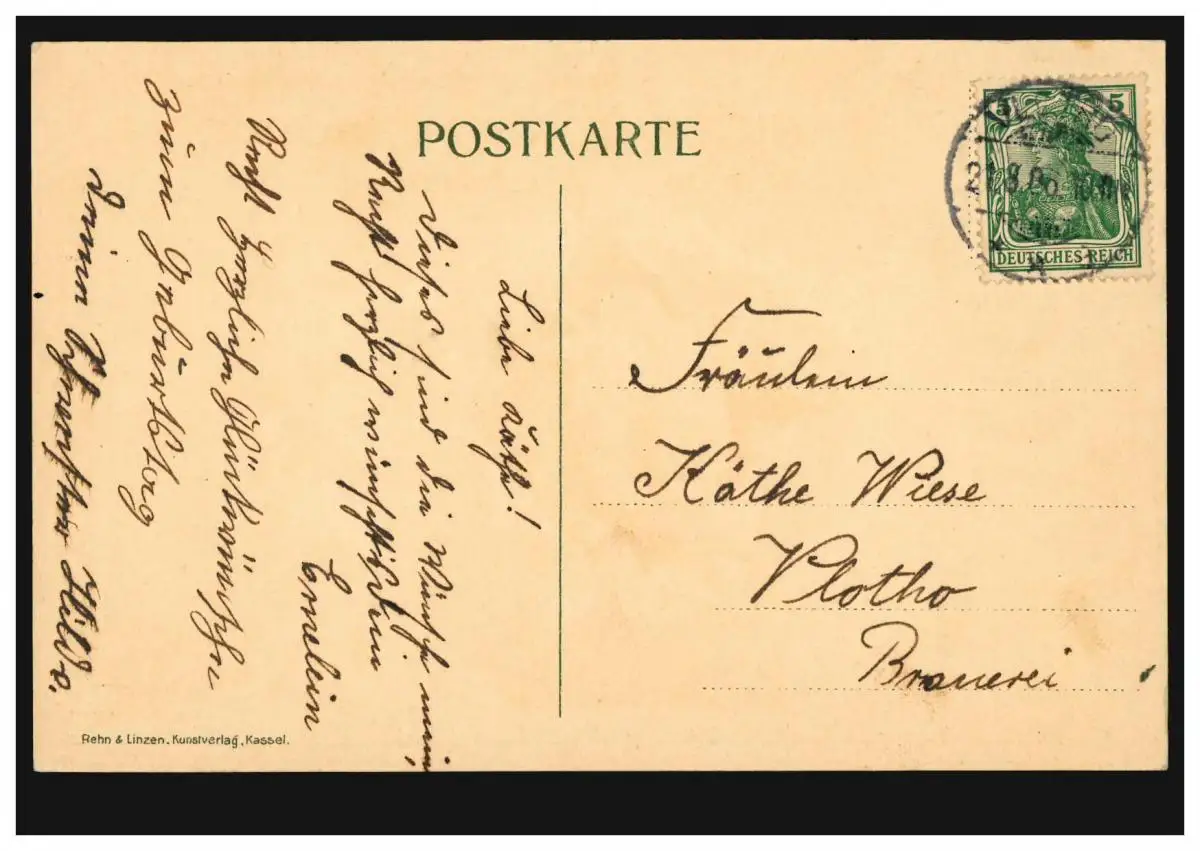 POSTKARTE
5 5
DEUTSCHES REICH
Liebe Käthe!
Dieses sind die Wünsche mein,
Recht herzlich wünscht Dein
Ernelein
Recht herzliche Glückwünsche
zum Geburtstag
Deine Schwester Hilda.
Fräulein
Käthe Wiese
Vlotho
Brauerei
Rehn & Linzen, Kunstverlag, Kassel.